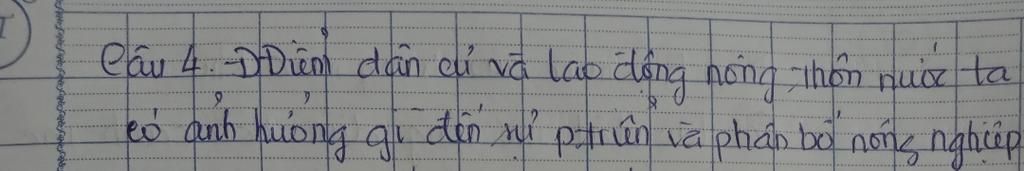 Câu 4. Điểm dân cư và lao động nông thôn nước ta
có ảnh hưởng gì đến sự p.triển và phân bố nông nghiệp